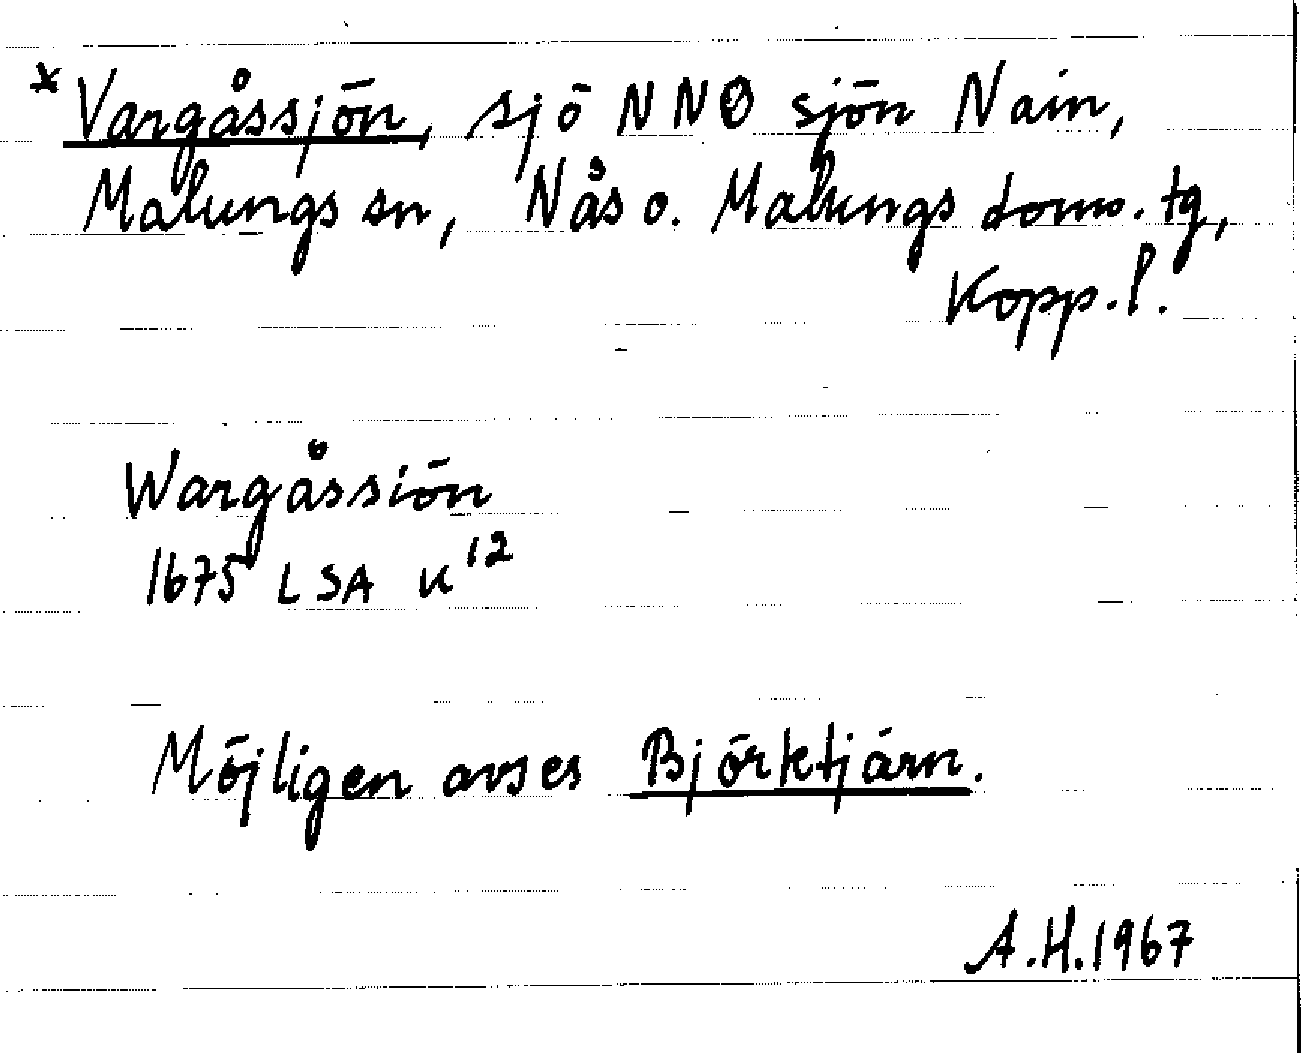 x Vargåssjön, sjö NNO sjön Nain,
Malungs sn, Nås o. Malungs doms. tg,
Kopp. l.
Wargåssiön
1675 LSA K 12
Möjligen avses Björktjärn.
A.H. 1967